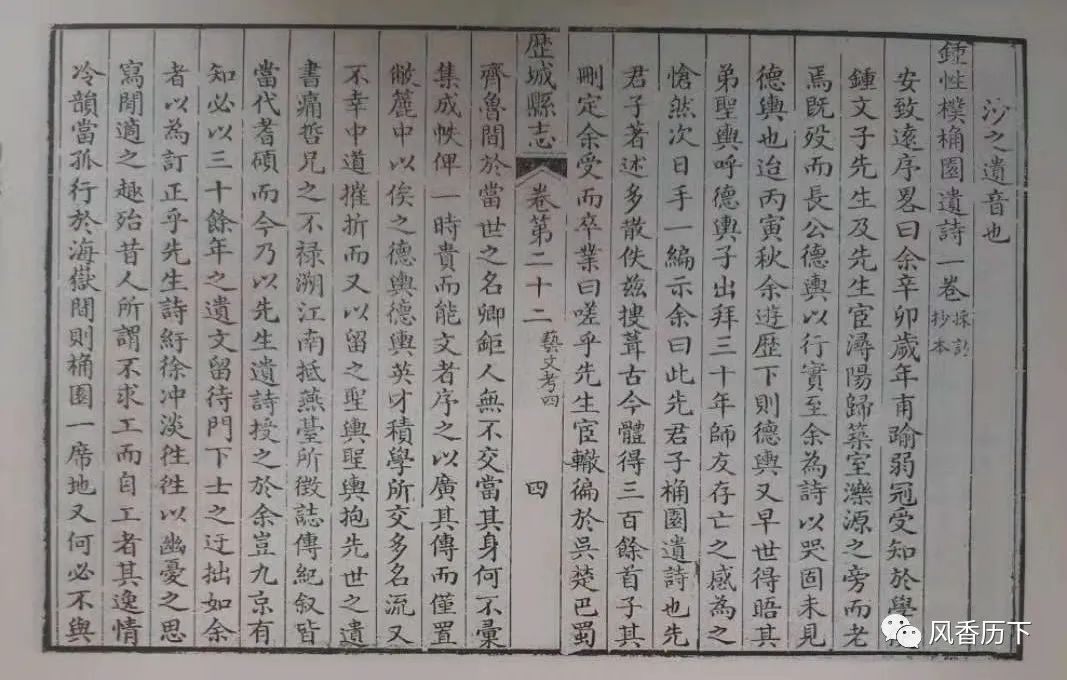 沙之遺音也
鍾性樸桷園遺詩一卷採訪抄本
安致遠序畧曰余辛卯歲年甫踰弱冠受知於學
鍾文子先生及先生宦潯陽歸築室濼源之旁而老
焉既歿而長公德輿以行實至余為詩以哭固未見
德輿也迨丙寅秋余遊歴下則德輿又早世得晤其
弟聖輿呼德輿子出拜三十年師友存亡之感為之
愴然次日手一編示余曰此先君子桷園遺詩也先
君子著述多散佚兹搜葺古今體得三百餘首子其
刪定余受而卒業曰嗟乎先生宦轍徧於吳楚巴蜀
歴城縣志 卷第二十二 藝文考四 四
齊魯間於當世之名卿鉅人無不交當其身何不彙
集成帙俾一時貴而能文者序之以廣其傳而僅置
敝簏中以俟之德輿德輿英才積學所交多名流又
不幸中道摧折而又以留之聖輿聖輿抱先世之遺
書痛哲兄之不禄溯江南抵燕臺所徵誌傳紀叙皆
當代耆碩而今乃以先生遺詩授之於余豈九京有
知必以三十餘年之遺文留待門下士之迂拙如余
者以為訂正乎先生詩紆徐冲淡徃徃以幽憂之思
寫閒適之趣殆昔人所謂不求工而自工者其逸情
冷韻當孤行於海嶽間則桷園一席地又何必不與
风香历下